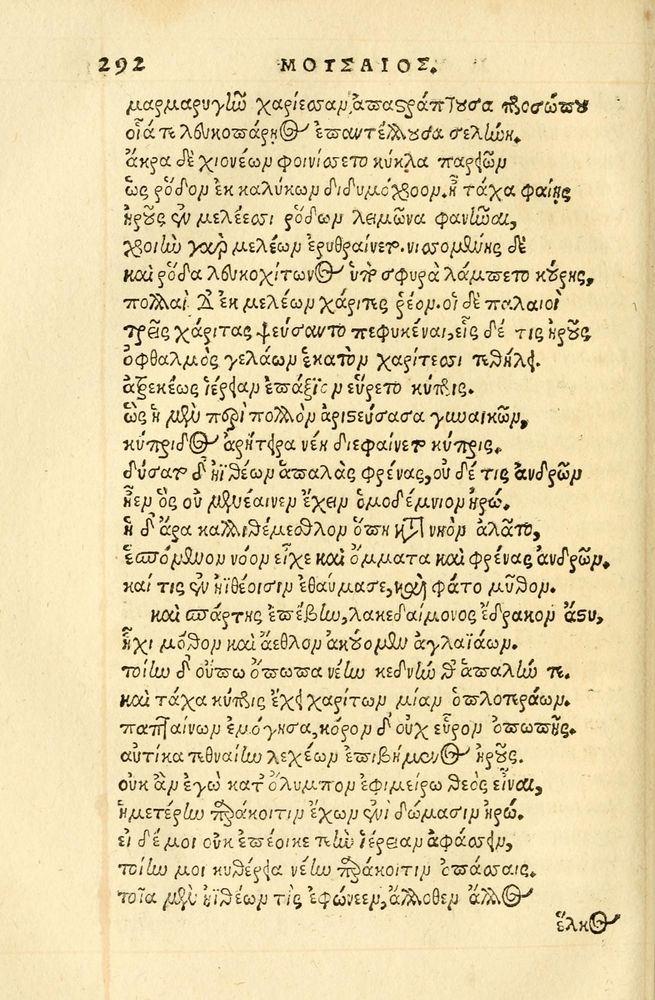 292 ΜΟΥΣΑΙΟΣ.
μαρμαρυγὴν χαρίεσσαν ἀπαστράπτουσα προσώπου
οἷά τε λευκοπάρῃος ἐπαντέλλουσα σελήνη.
ἄκρα δὲ χιονέων φοινίσσετο κύκλα παρειῶν
ὡς ῥόδον ἐκ καλύκων διδυμόχροον. ἢ τάχα φαίης
ἡροῦς ἐν μελέεσσι ῥόδων λειμῶνα φανῆναι,
χροιὴν γὰρ μελέων ἐρυθραίνετο. νισσομένης δὲ
καὶ ῥόδα λευκοχίτωνος ὑπὸ σφυρὰ λάμπετο κούρης,
πολλαὶ δ' ἐκ μελέων χάριτες ῥέον. οἱ δὲ παλαιοὶ
τρεῖς χάριτας ψεύσαντο πεφυκέναι, εἷς δέ τις ἡροῦς
ὀφθαλμὸς γελάων ἑκατὸν χαρίτεσσι τεθήλει.
ἀτρεκέως ἱέρειαν ἐπάξιον εὕρετο κύπρις.
ὣς ἡ μὲν περὶ πολλὸν ἀριστεύσασα γυναικῶν,
κύπριδος ἀρήτειρα νέη διεφαίνετο κύπρις.
δύσατο δ' ἠϊθέων ἁπαλὰς φρένας, οὐδέ τις ἀνδρῶν
ἦεν ὃς οὐ μενέαινεν ἔχειν ὁμοδέμνιον ἡρώ.
ἡ δ' ἄρα καλλιθέμεθλον ὅπη κατὰ νηὸν ἀλᾶτο,
ἑσπόμενον νόον εἶχε καὶ ὄμματα καὶ φρένας ἀνδρῶν.
καί τις ἐν ἠϊθέοισιν ἐθαύμασε, καὶ φάτο μῦθον.
καὶ σπάρτης ἐπέβην, λακεδαίμονος ἔδρακον ἄστυ,
ἧχι μόθον καὶ ἄεθλον ἀκούομεν ἀγλαϊάων.
τοίην δ' οὔπω ὄπωπα νέην κεδνήν θ' ἁπαλήν τε.
καὶ τάχα κύπρις ἔχει χαρίτων μίαν ὁπλοτεράων.
παπταίνων ἐμόγησα, κόρον δ' οὐχ εὗρον ὀπωπῆς.
αὐτίκα τεθναίην λεχέων ἐπιβήμενος ἡροῦς.
οὐκ ἂν ἐγὼ κατ' ὄλυμπον ἐφιμείρω θεὸς εἶναι,
ἡμετέρην παράκοιτιν ἔχων ἐνὶ δώμασιν ἡρώ.
εἰ δέ μοι οὐκ ἐπέοικε τεὴν ἱέρειαν ἀφάσσειν,
τοίην μοι κυθέρεια νέην παράκοιτιν ὀπάσσαις.
τοῖα μὲν ἠϊθέων τὶς ἐφώνεεν, ἄλλοθεν ἄλλος
ἕλκος